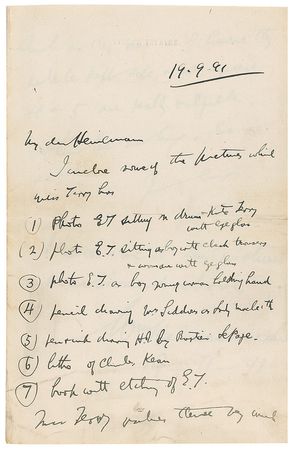 19-9-91
My dear Heinemann
I enclose some of the pictures which
Miss Terry has
(1) Photo E.T. sitting Kate Terry
with eyeglass
(2) photo E.T. sitting as boy with check trousers
& woman with eyeglass
(3) photo E.T. as boy young woman holding hand
(4) pencil drawing Mrs Siddons as Lady Macbeth
(5) pen & ink drawing HI by Bastien LePage.
(6) litho of Charles Kean
(7) book with etching of E.T.
Miss Terry values these very much